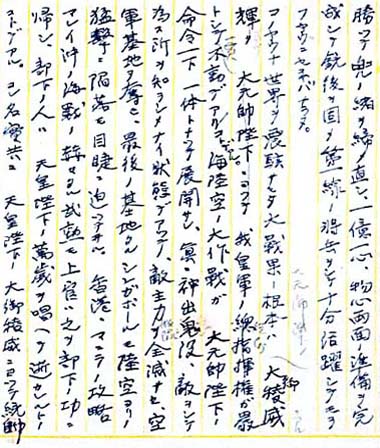 勝ツテ兜ノ緒ヲ締メ直シ、一億一心、物心両面準備ヲ完
成シテ銃後ヲ固メ第一線ノ将兵ヲシテ十分活躍シテモラ
フヤウニセネバナラヌ。
コノヤウナ世界ヲ震駭サセタ大戦果ノ根本ハ 大稜威
御
大元帥陛下ノ
輝ク 大元帥陛下ニヨツテ 我皇軍ノ総指揮権ガ厳
トシテ不動デアル。海陸空ノ大作戦ガ 大元帥陛下ノ
命令一下、一体トナツテ展開サレ、真ニ神出鬼没、敵ヲシテ
為ス所ヲ知ラシメナイ状態デアツテ、敵主力ヲ全滅サセ空
軍基地ヲ奪ヒ、最後ノ基地タルシンガポールモ陸空ヨリノ
猛撃ニ陥落モ目睫ニ迫ツテヰル。香港、マニラノ攻略
マレイ沖海戦ノ赫々タル武勲モ上官ハ之ヲ部下ノ功ニ
帰シ、部下ノ人ハ 天皇陛下ノ萬歳ヲ唱ヘテ逝カレルノ
コトデアル。コレ名実共ニ 天皇陛下ノ大御稜威ニヨツテ統帥